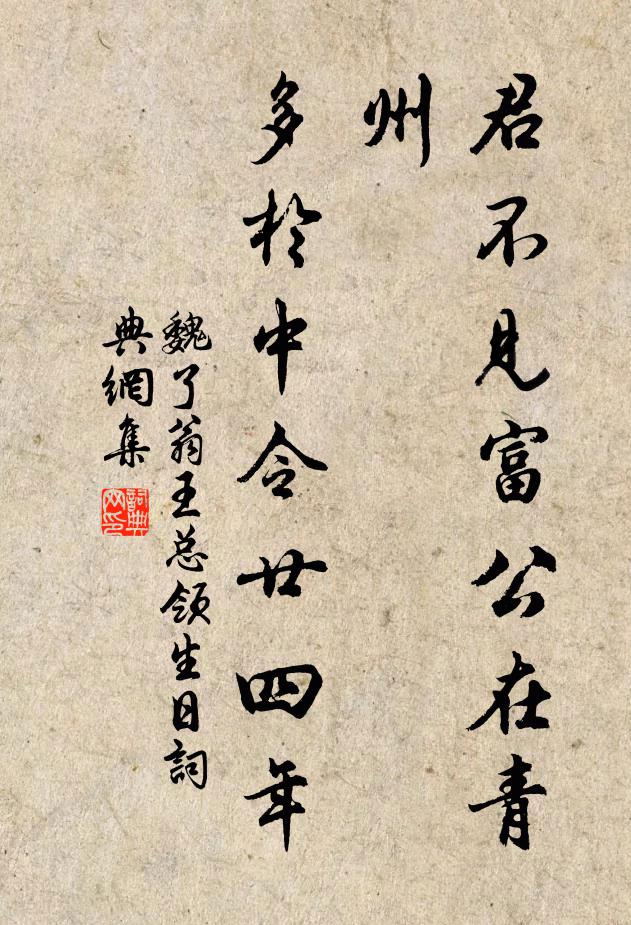 君不見富公在青
州
多於中令廿四年
魏了翁王总領生日詞
典網集
詞典
网印